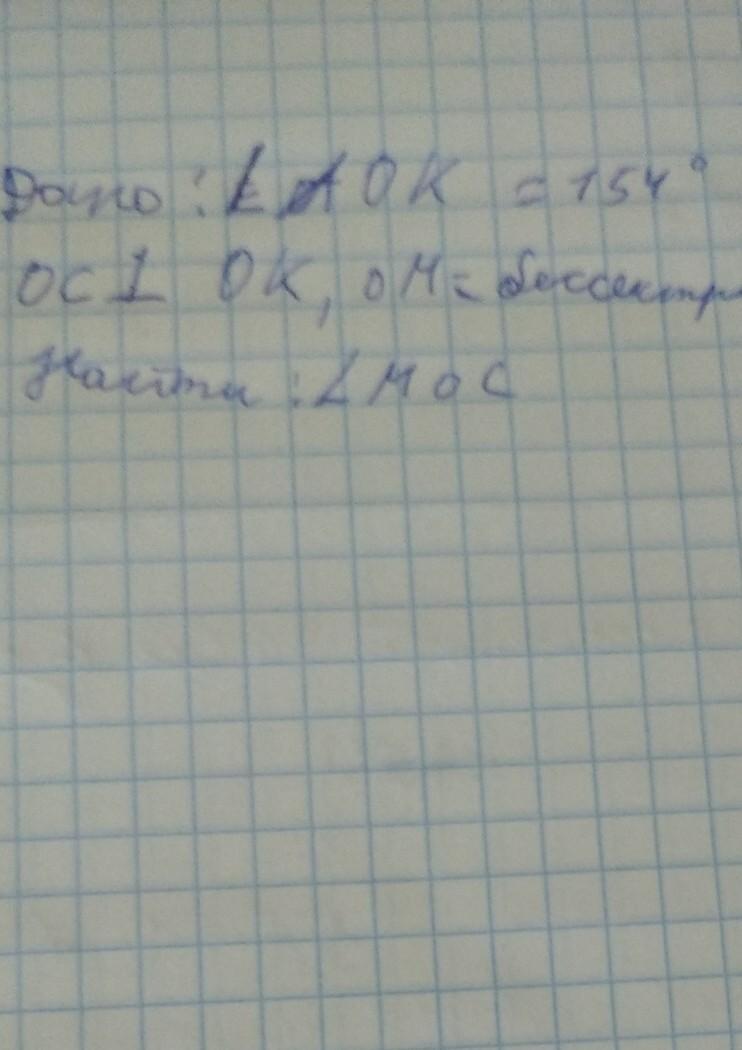 Дано: ∠AOK = 154°
OC ⊥ OK, OM = биссектри
Найти: ∠MOC